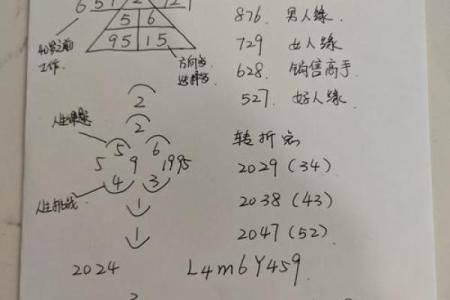 6 5 7 2 7 2 7
5 6
95 15
40岁之前
工作
方向盘
选择盘
876. 男人缘.
729 女人缘.
628. 销售高手.
527. 好人缘.
2
2
人生课题
5 6
5 9 1995
4 3
人生挑战
1
1
转折点
2029 (34)
2038 (43)
2047 (52)
2024 L4m6Y459.